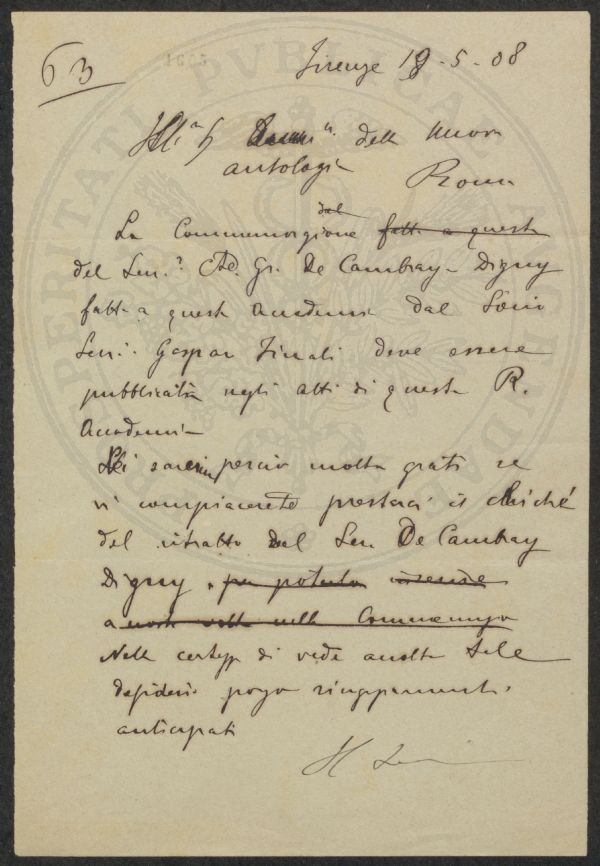 63
Firenze 19-5-08
della Nuova
antologia Roma
La Commemorazione dal fatta a questa
del Sen.e Gr. De Cambray-Digny
fatta a questa Accademia dal Socio
Sen. Gaspar Finali deve essere
pubblicata negli atti di questa R.
Accademia
perciò molto grati se
vi compiacerete prestarci il cliché
del ritratto del Sen. De Cambray
Digny, per poterlo inserire
a nostra volta nella Commemorazio
Nella certezza di veder accolto tale
desiderio porgo ringraziamenti
anticipati